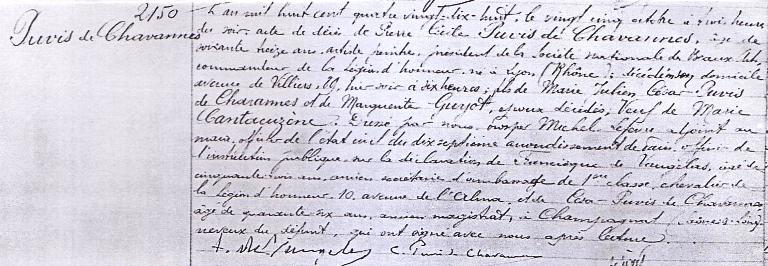 2150
Puvis de Chavannes
L'an mil huit cent quatre vingt-dix-huit, le vingt cinq octobre à trois heures
du soir, acte de décès de Pierre Cécile Puvis de Chavannes, âgé de
soixante treize ans, artiste peintre, président de la Société nationale des Beaux Arts,
commandeur de la Légion d'honneur, né à Lyon (Rhône); décédé en son domicile
avenue de Villiers, 89, hier soir à six heures; fils de Marie Julien César Puvis
de Chavannes et de Marguerite Guyot, époux décédés, Veuf de Marie
Cantacuzène. Dressé par nous, Michel Lefèvre adjoint au
maire, officier de l'état civil du dix septième arrondissement de Paris, officier de
l'instruction publique, sur la déclaration de Francisque de Vaugelas, âgé de
cinquante trois ans, ancien secrétaire d'ambassade de 1ère classe, chevalier de
la Légion d'honneur, 10, avenue de l'Alma, et de César Puvis de Chavannes
âgé de quarante six ans, ancien magistrat, à Champagnat (Saône & Loire)
neveux du défunt, qui ont signé avec nous après lecture.
C. Puvis de Chavannes